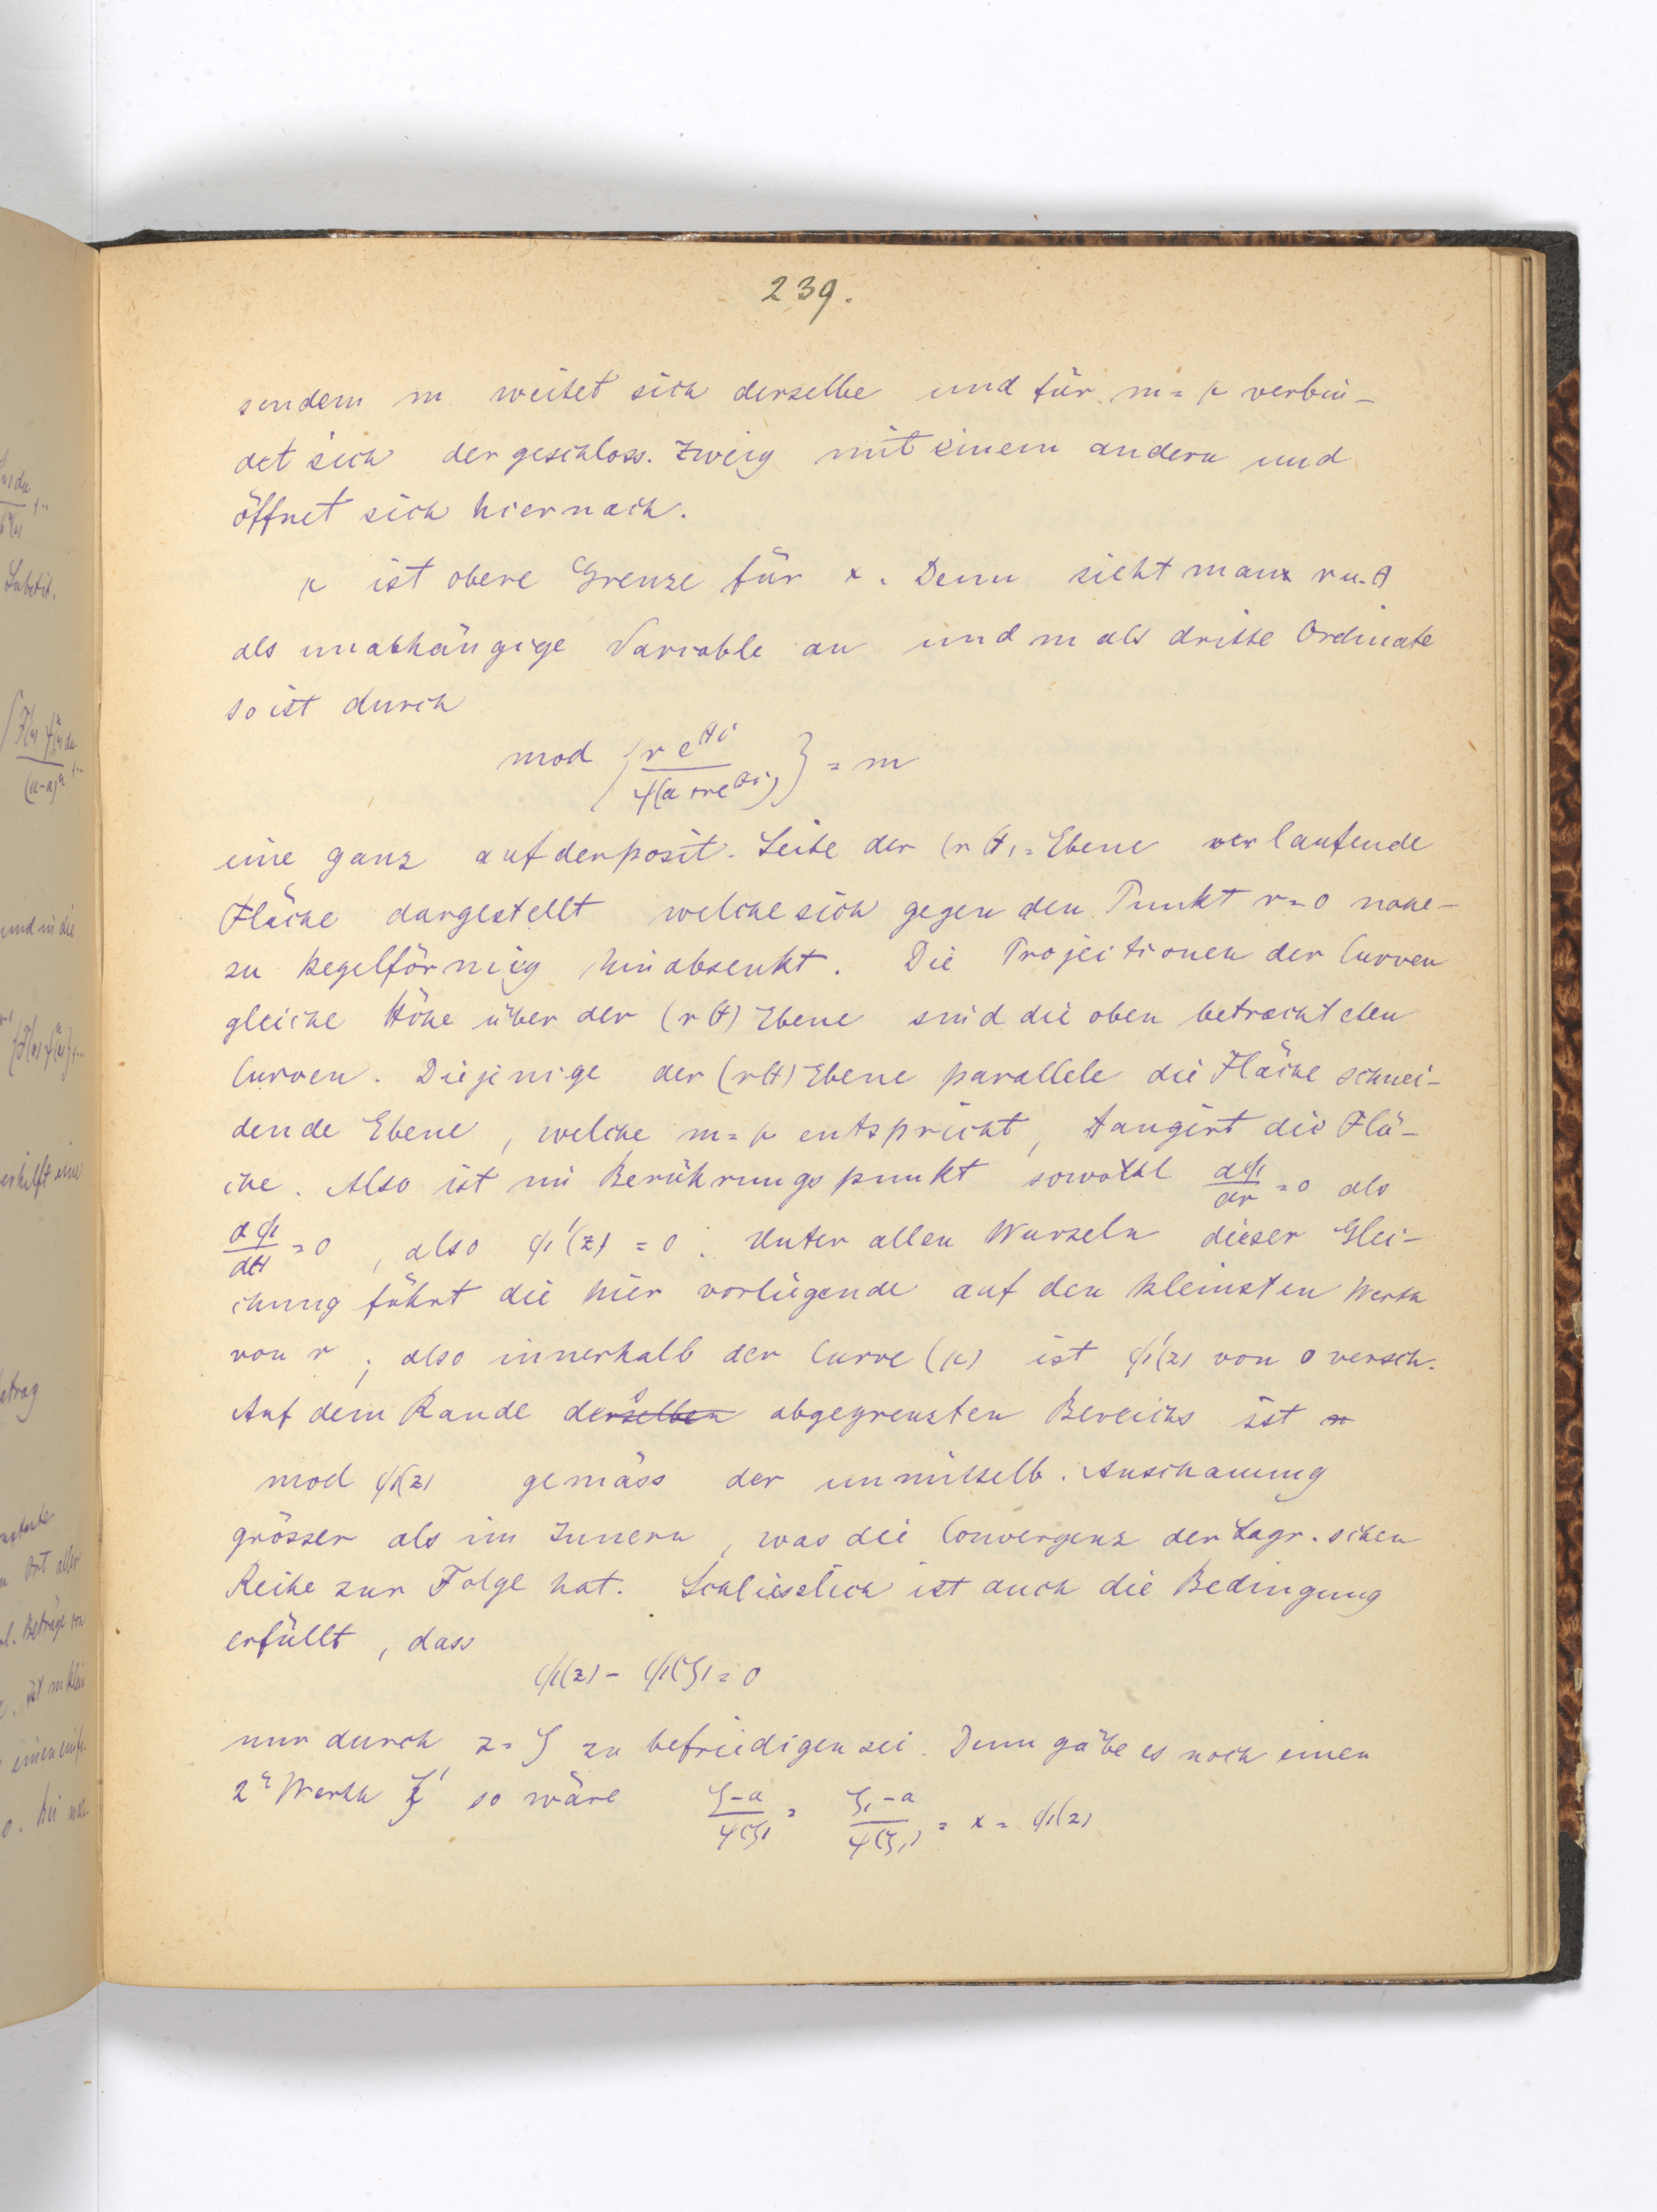 239.
sendem m weitet sich derselbe und für m = μ verbin-
det sich der geschloss. Zweig mit einem andern und
öffnet sich hiernach.
μ ist obere Grenze für x. Denn sieht man r u. θ
als unabhängige Variable an und m als dritte Ordinate
so ist durch
mod { r e^{θi} / ψ(a + re^{θi}) } = m
eine ganz auf der posit. Seite der (r θ) = Ebene verlaufende
Fläche dargestellt welche sich gegen den Punkt r = 0 nahe-
zu kegelförmig hinabsenkt. Die Projectionen der Curven
gleiche Höhe über der (r θ) Ebene sind die oben betrachteten
Curven. Diejenige der (r θ) Ebene parallele die Fläche schnei-
dende Ebene, welche m = μ entspricht, tangirt die Flä-
che. Also ist im Berührungspunkt sowohl dφ/dr = 0 als
dφ/dθ = 0, also φ'(z) = 0. Unter allen Wurzeln dieser Glei-
chung führt die hier vorliegende auf den kleinsten Werth
von r; also innerhalb der Curve (μ) ist φ'(z) von 0 versch.
Auf dem Rande derselben abgegrenzten Bereichs ist
mod φ(z) gemäss der unmittelb. Anschauung
grösser als im Innern, was die Convergenz der Lagr.schen
Reihe zur Folge hat. Schliesslich ist auch die Bedingung
erfüllt, dass
φ(z) - φ(ζ) = 0
nur durch z = ζ zu befriedigen sei. Denn gäbe es noch einen
2ⁿ Werth ζ' so wäre (ζ-a)/ψ(ζ) = (ζ₁-a)/ψ(ζ₁) = x = φ(z)